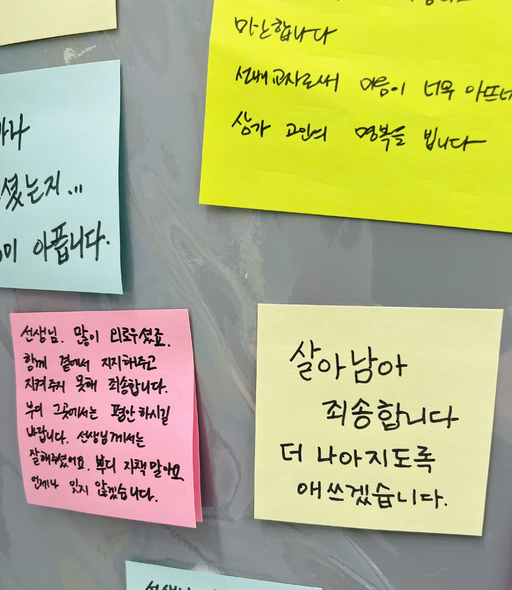 미안합니다
선배교사로써 마음이 너무 아프네
삼가 고인의 명복을 빕니다
셨는지...
아픕니다.
선생님. 많이 외로우셨죠.
함께 곁에서 지지해주고
지켜주지 못해 죄송합니다.
부디 그곳에서는 평안하시길
바랍니다. 선생님께서는
잘해주셨어요. 부디 자책말아요
언제나 잊지 않겠습니다.
살아남아
죄송합니다
더 나아지도록
애쓰겠습니다.